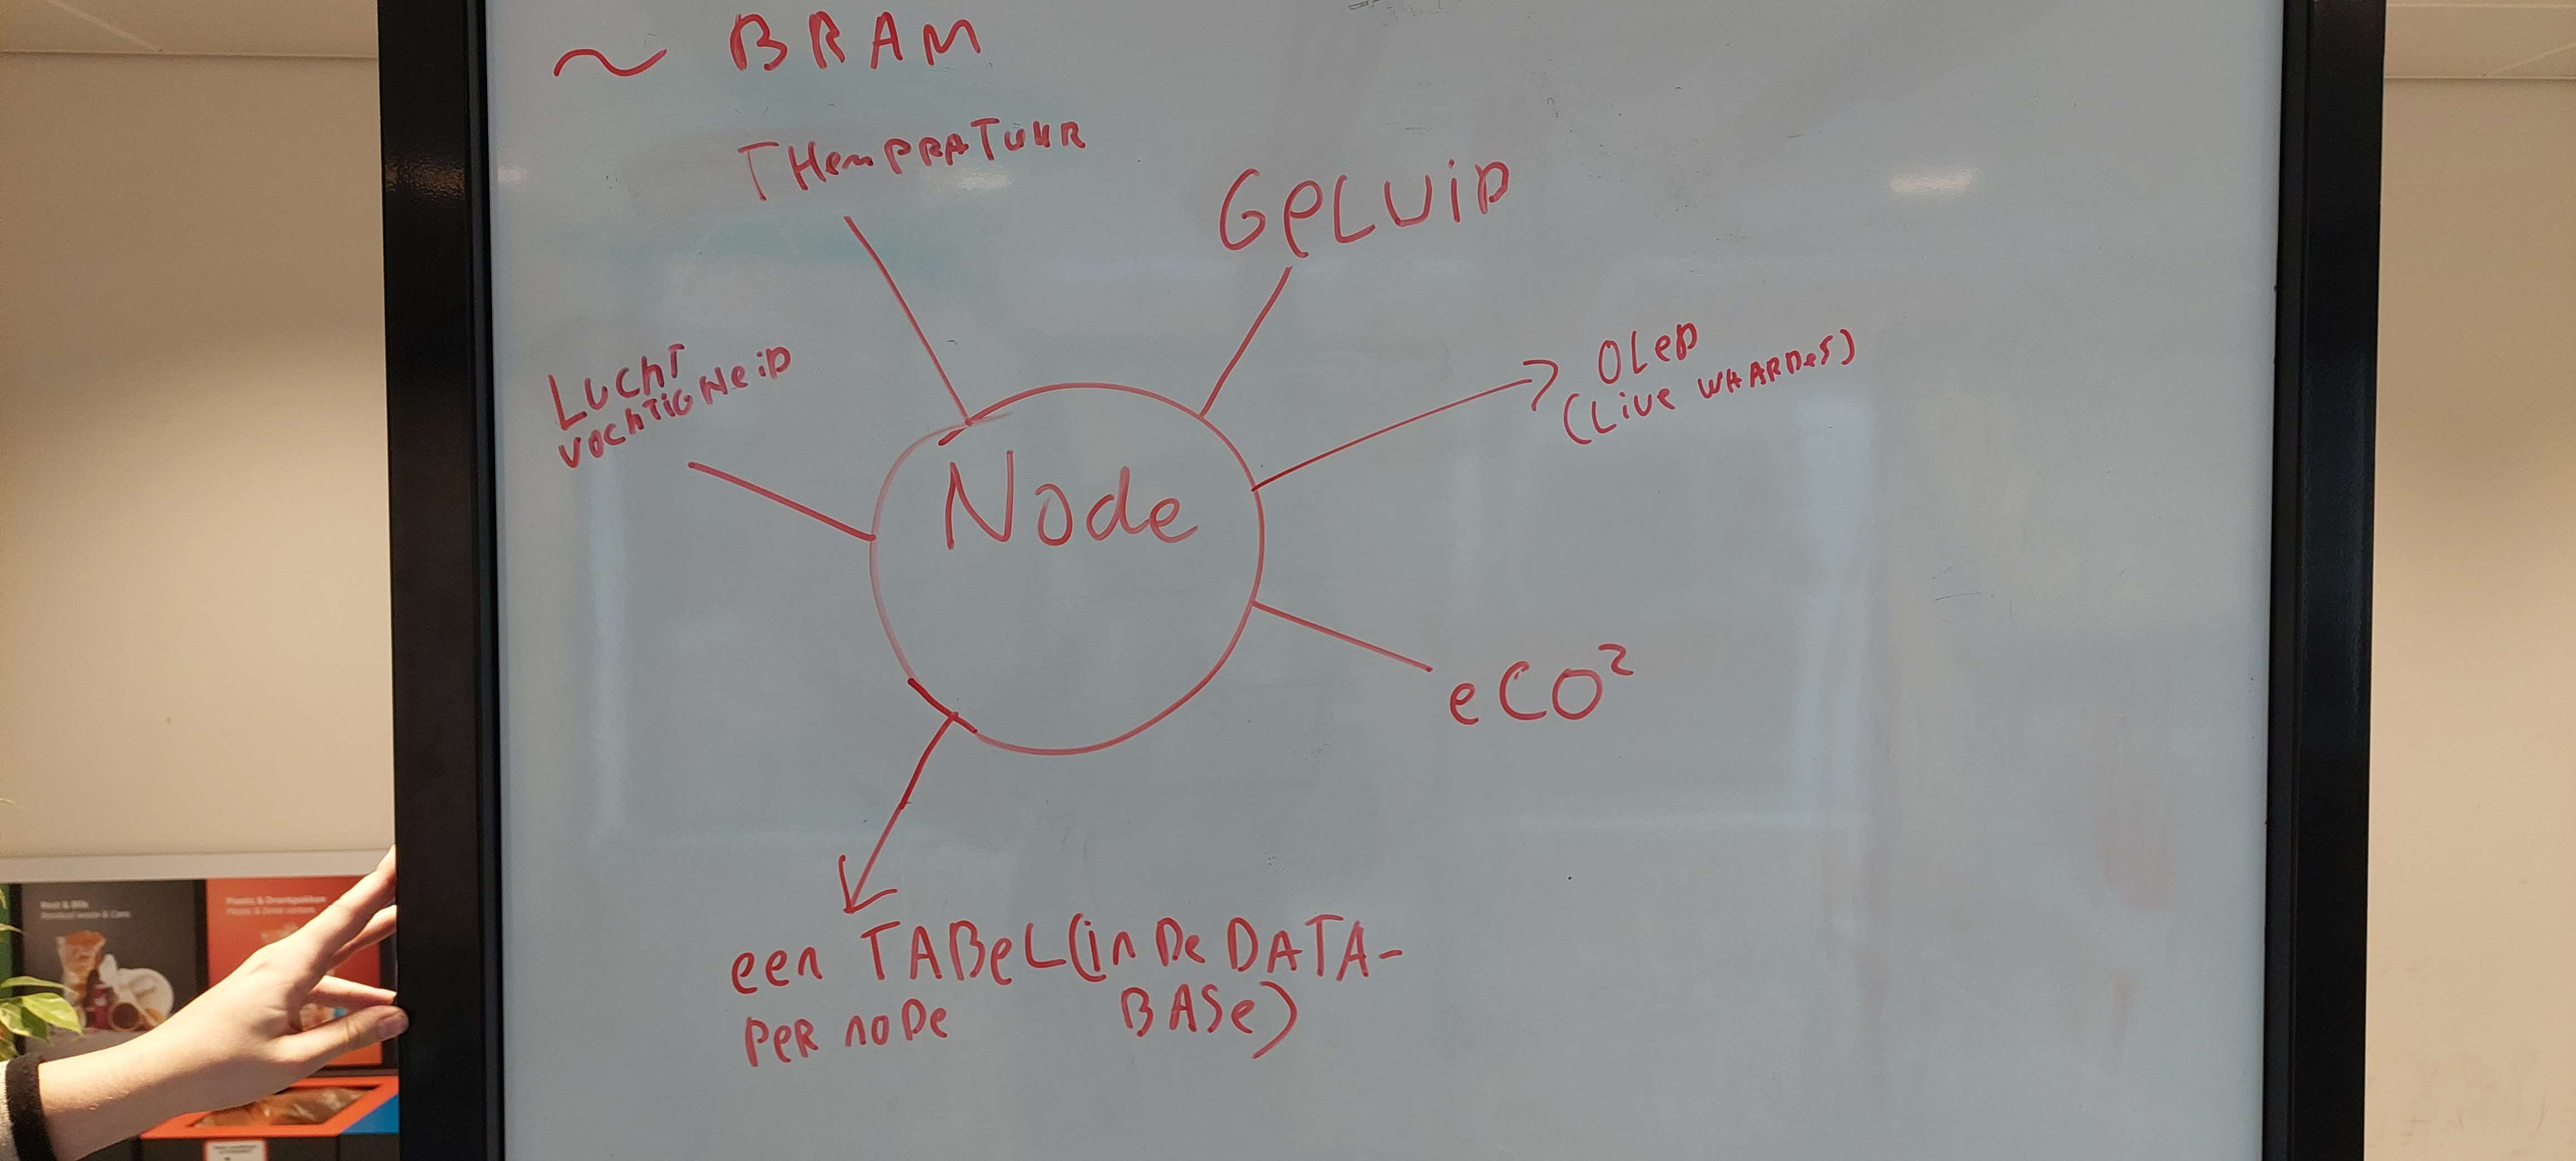 ~ BRAM
THemPRATUUR
GeLUiD
LuchT
vochTiGHeiD
OLeD
(Live WHAARDeS)
Node
eCO²
een TABeL (in De DATA-
BASe)
PeR noDe
Rest & Blik
Residual waste & Cans
Plastic & Drankpakken
Plastic & Drink cartons